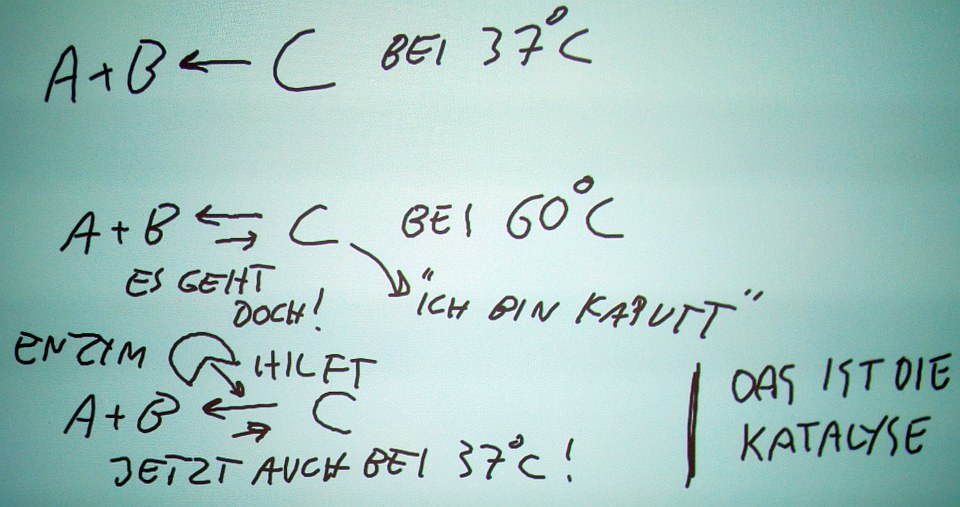 A + B ← C BEI 37°C
A + B ⇆ C BEI 60°C
ES GEHT
DOCH!
"ICH BIN KAPUTT"
ENZYM HILFT
A + B ⇆ C
JETZT AUCH BEI 37°C!
DAS IST DIE
KATALYSE